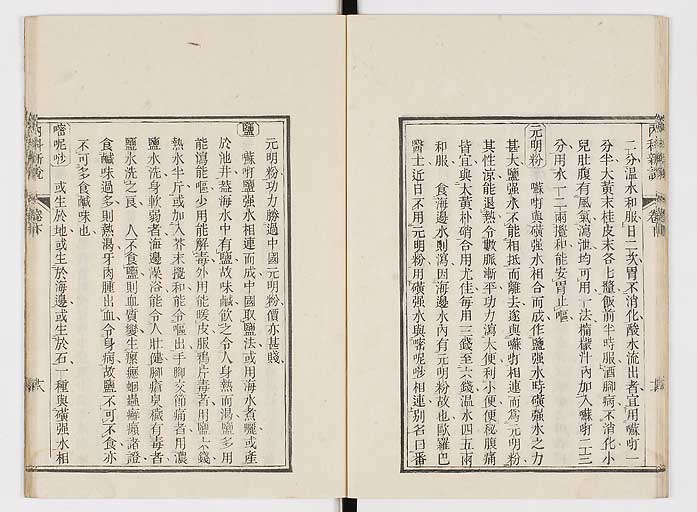 二分溫水和服日二次胃不消化酸水流出者宜用嚹𠸄一
分半大黃末桂皮末各七釐飯前半時服酒腳病不消化小
兒肚腹有風氣瀉泄均可用一法檸檬汁內加入嚹𠸄二三
分用水一二兩攪和能安胃止嘔
元明粉 嚹𠸄與磺强水相合而成作鹽强水時磺强水之力
甚大鹽强水不能相抵而離去遂與嚹𠸄相連而爲元明粉
其性涼能退熱令脈漸平功力瀉大便利小便便秘腹痛
皆宜與大黃朴硝合用尤佳每用三錢至六錢溫水四五兩
和服 食海邊水則瀉因海邊水內有元明粉故也歐羅巴
醫士近日不用元明粉用磺强水與嘧呢唦相連別名曰番
元明粉功力勝過中國元明粉價亦甚賤
鹽 嚹𠸄鹽强水相連而成中國取鹽法或用海水煮曬或產
於池井蓋海水中有鹽故味鹹飲之令人身熱而渴鹽多用
能瀉能嘔少用能解毒外用能暖皮服鴉片毒者用鹽六錢
熱水半斤或加入芥末攪和能令嘔出手腳交節痛者用濃
鹽水洗身軟弱者海邊澡浴能令人壯健腳瘡臭穢有毒者
鹽水洗之良 人不食鹽則血質變生瘰癧蛔蟲癬癩諸證
食鹹味過多則熱渴牙肉腫出血令身病故鹽不可不食亦
不可多食鹹味也
嘧呢唦 或生於地或生於海邊或生於石一種與磺强水相
內科新說
卷下